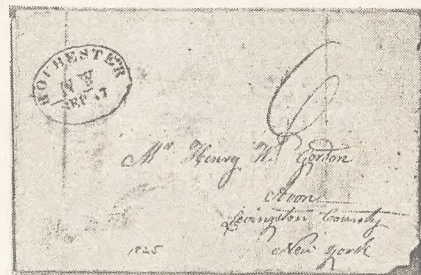 ROCHESTER
SEP 17
6
Mr Henry W. Gordon
Avon
Livingston County
New York
1825